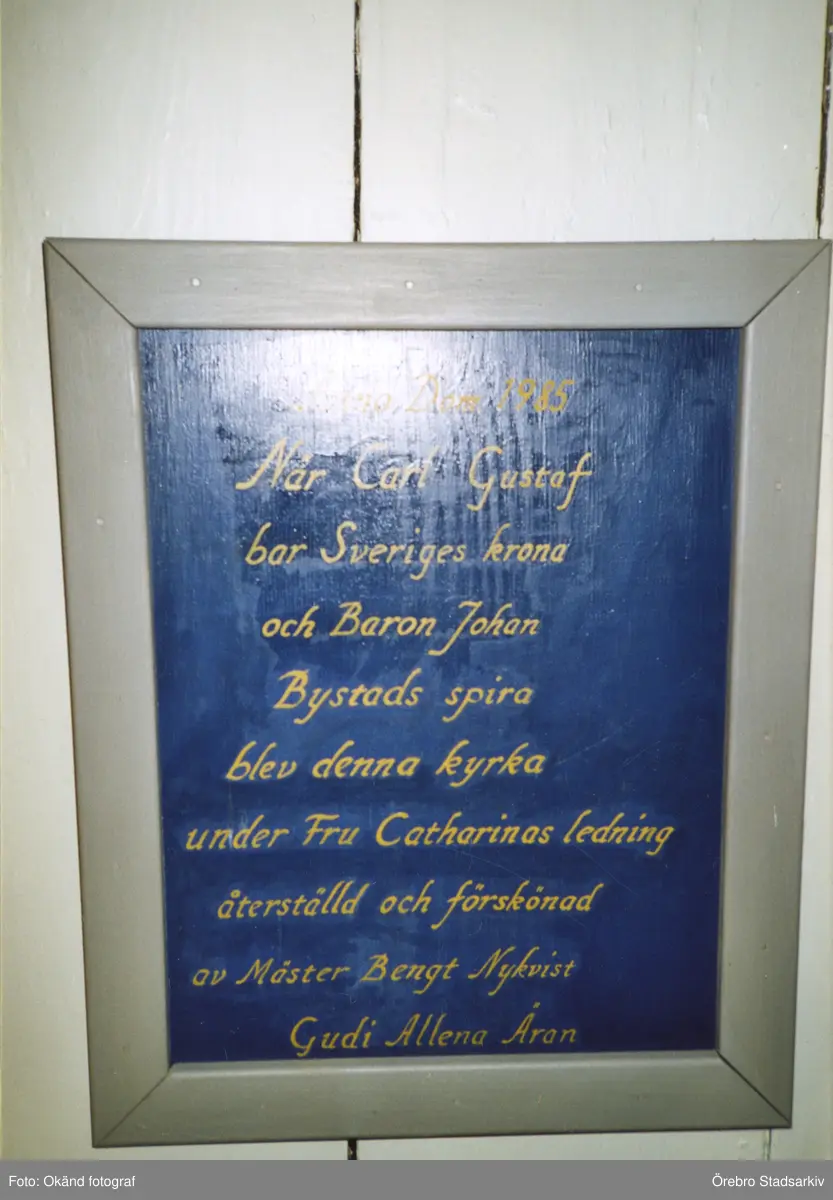 Anno Dom 1985
När Carl Gustaf
bar Sveriges krona
och Baron Johan
Bystads spira
blev denna kyrka
under Fru Catharinas ledning
återställd och förskönad
av Mäster Bengt Nykvist
Gudi Allena Äran
Foto: Okänd fotograf
Örebro Stadsarkiv